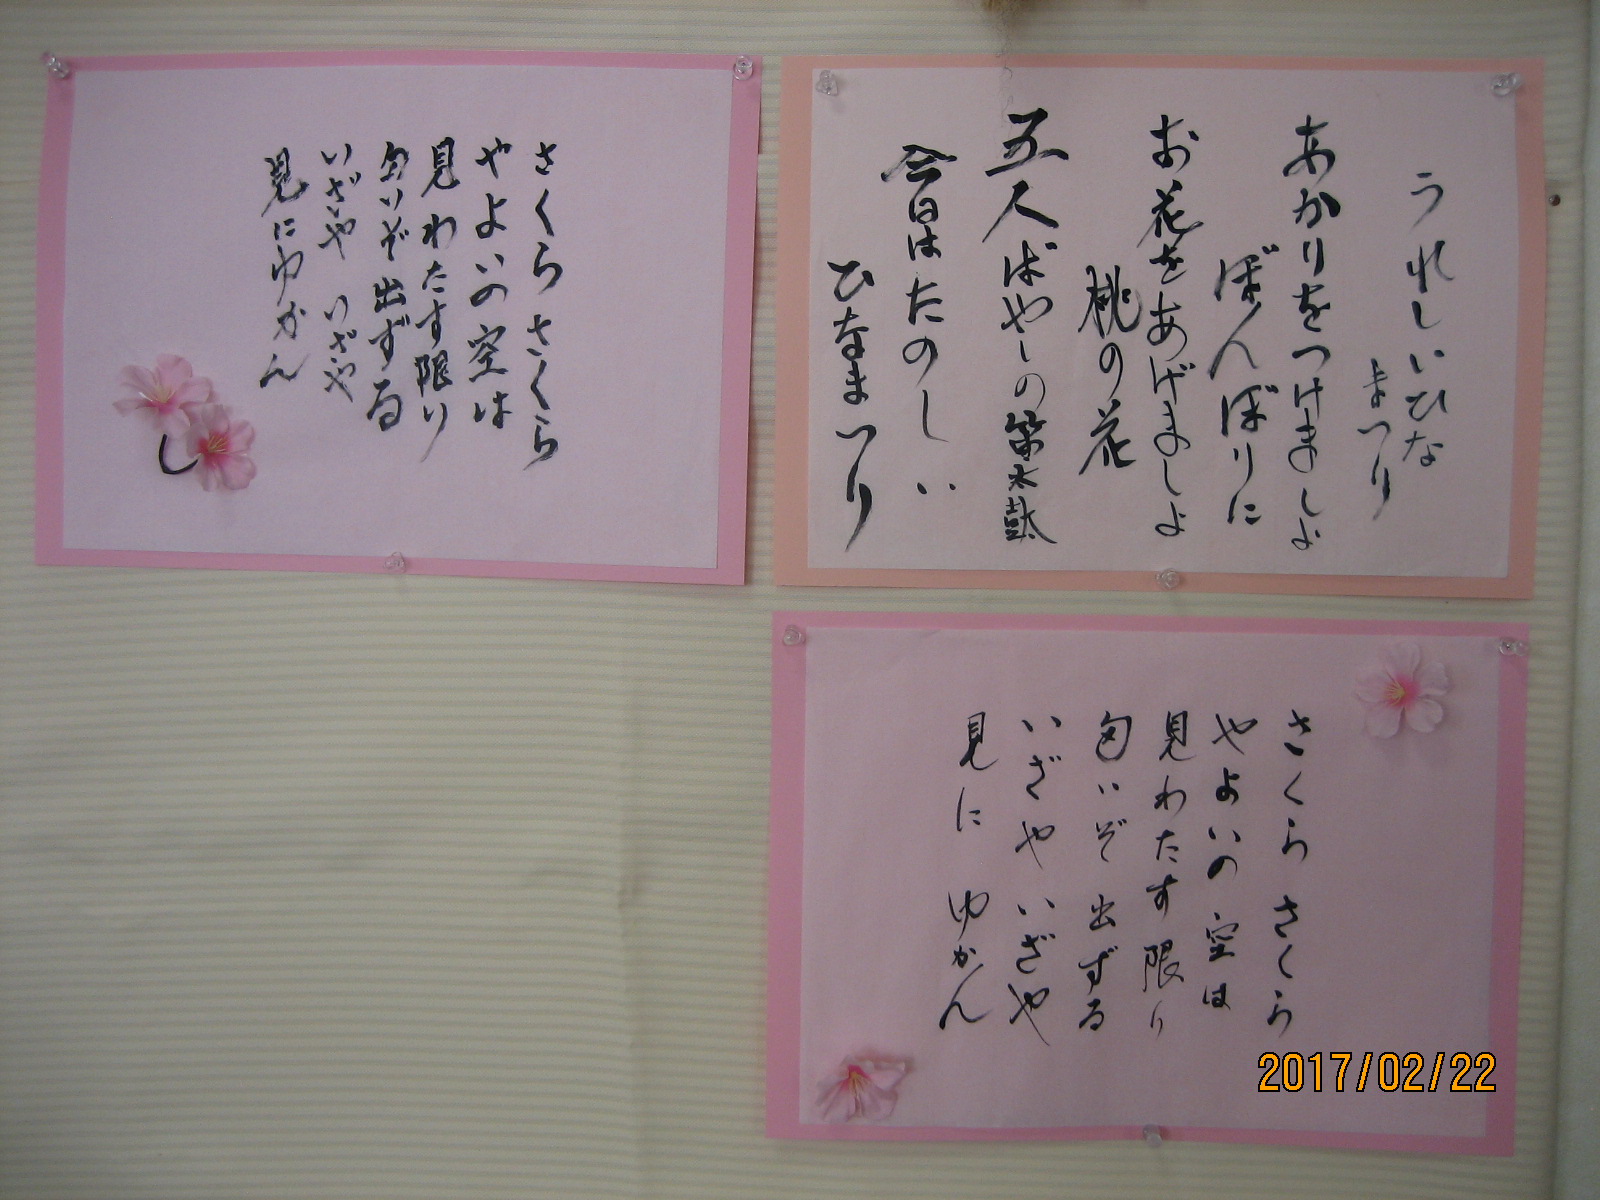 うれしいひな
まつり
あかりをつけましょ
ぼんぼりに
お花をあげましょ
桃の花
五人ばやしの笛太鼓
今日はたのしい
ひなまつり
さくらさくら
やよいの空は
見わたす限り
匂いぞ出ずる
いざや いざや
見にゆかん
さくらさくら
やよいの空は
見わたす限り
匂いぞ出ずる
いざやいざや
見にゆかん
2017/02/22